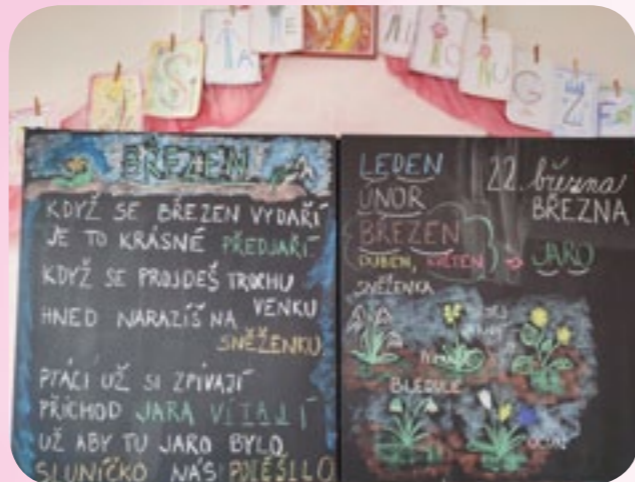 BŘEZEN
KDYŽ SE BŘEZEN VYDAŘÍ
JE TO KRÁSNÉ PŘEDJAŘÍ
KDYŽ SE PROJDEŠ TROCHU
VENKU
HNED NARAZÍŠ NA
SNĚŽENKU
PTÁCI UŽ SI ZPÍVAJÍ
PŘÍCHOD JARA VÍTAJÍ
UŽ ABY TU JARO BYLO
SLUNÍČKO NÁS POTĚŠILO
LEDEN
ÚNOR
BŘEZEN
DUBEN, KVĚTEN → JARO
22. března
BŘEZNA
SNĚŽENKA
BLEDULE